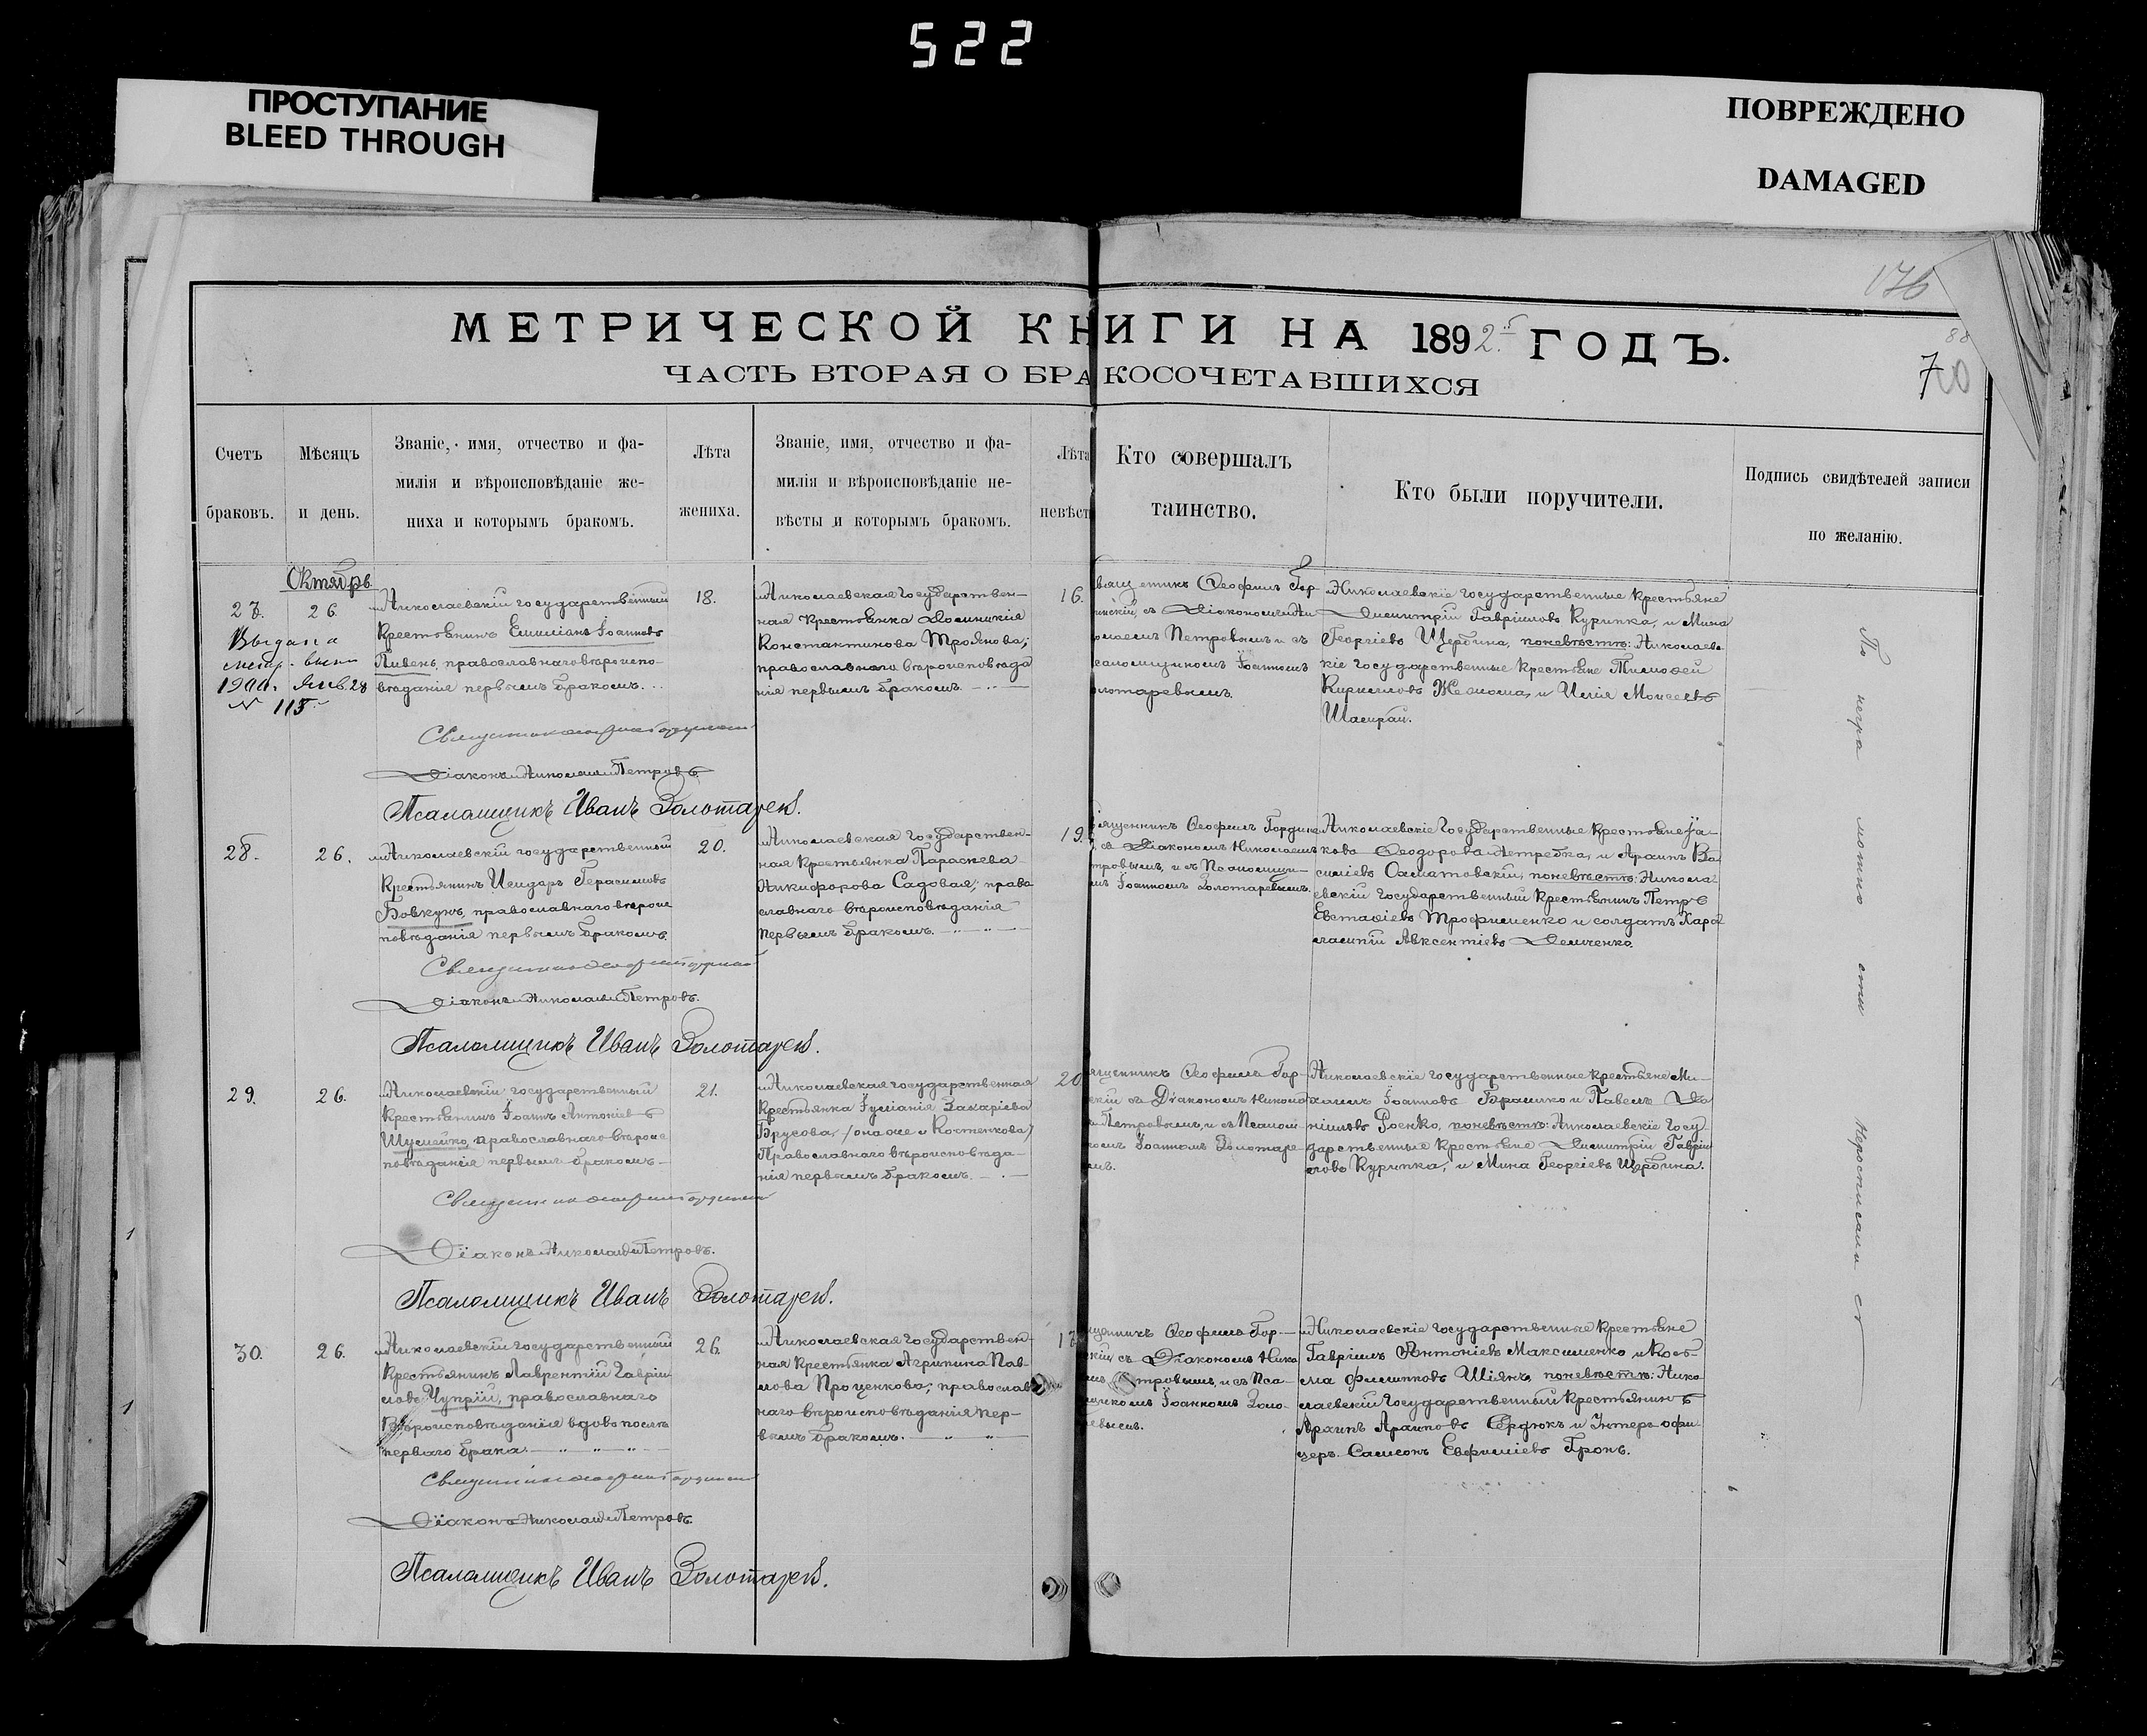 522
ПРОСТУПАНИЕ
BLEED THROUGH
ПОВРЕЖДЕНО
DAMAGED
176
88
7
МЕТРИЧЕСКОЙ КНИГИ НА 1892 ГОДЪ.
ЧАСТЬ ВТОРАЯ О БРАКОСОЧЕТАВШИХСЯ
Счетъ
браковъ.
Мѣсяцъ
и день.
Званіе, имя, отчество и фа-
милія и вѣроисповѣданіе же-
ниха и которымъ бракомъ.
Лѣта
жениха.
Званіе, имя, отчество и фа-
милія и вѣроисповѣданіе не-
вѣсты и которымъ бракомъ.
Лѣта
невѣст
Кто совершалъ
таинство.
Кто были поручители.
Подпись свидѣтелей записи
по желанію.
Октябрь
27.
26.
Выдана
метр. вып
1900 г. Янв. 28
№ 115
Николаевскій государственный
крестьянинъ Емиліанъ Іоанновъ
Пивень, православнаго вѣроиспо-
вѣданія первымъ бракомъ.
18.
Николаевская государствен-
ная крестьянка Домникія
Константинова Троянова,
православнаго вѣроисповѣда
нія первымъ бракомъ.
16.
Ѳеофилъ Гор-
съ Діакономъ Ни
олаемъ Петровымъ и съ
саломщикомъ Іоанномъ
олотаревымъ.
Николаевскіе государственные крестьяне
Димитрій Гавріиловъ Курипка, и Мина
Георгіевъ Щербина, по невѣстѣ: Николаевс
кіе государственные крестьяне Тимоѳей
Кирилловъ Жемома, и Илія Моисеевъ
Шамрай.
Діаконъ Николай Петровъ.
Псаломщикъ Иванъ Золотарев.
28.
26.
Николаевскій государственный
крестьянинъ Исидоръ Герасимовъ
Бовкунъ, православнаго вѣроис
повѣданія первымъ бракомъ.
20.
Николаевская государствен-
ная крестьянка Параскева
Никифорова Садовая, право
славнаго вѣроисповѣданія
первымъ бракомъ.
19.
ященникъ Ѳеофилъ Гордин
съ Діакономъ Николаемъ
тровымъ, и съ Псаломщи-
мъ Іоанномъ Золотаревымъ.
Николаевскіе государственные крестьяне Іа-
ковъ Ѳеодоровъ Нетребка, и Архипъ Ва
силіевъ Саматовскій, по невѣстѣ: Никола-
евскій государственный крестьянинъ Петръ
Евстаѳіевъ Трофименко и солдатъ Хара
лампій Авксентіевъ Демченко.
Діаконъ Николай Петровъ.
Псаломщикъ Иванъ Золотарев.
29.
26.
Николаевскій государственный
крестьянинъ Іоаннъ Антоніевъ
Шумейко, православнаго вѣроис
повѣданія первымъ бракомъ
21.
Николаевская государственная
крестьянка Іуліанія Захаріева
Брусова, /она же и Костенкова/
Православнаго вѣроисповѣда-
нія первымъ бракомъ.
20
щенникъ Ѳеофилъ Гор-
скій съ Діакономъ Никола
Петровымъ, и съ Псалом
комъ Іоанномъ Золотаре-
мъ.
Николаевскіе государственные крестьяне Ми-
хаилъ Іоанновъ Брашко и Павелъ Да
ніиловъ Роенко, по невѣстѣ: Николаевскіе госу-
дарственные крестьяне Димитрій Гавріи
ловъ Курипка, и Мина Георгіевъ Щербина.
Діаконъ Николай Петровъ.
Псаломщикъ Иванъ Золотарев.
30.
26.
Николаевскій государственный
крестьянинъ Лаврентій Гавріи-
ловъ Чуприй, православнаго
Вѣроисповѣданія вдовъ послѣ
перваго брака.
26.
Николаевская государствен-
ная крестьянка Агрипина Пав-
лова Проценкова, православ
наго вѣроисповѣданія пер-
вымъ бракомъ.
17
щенникъ Ѳеофилъ Гор-
скій, съ Діакономъ Нико
тровымъ, и съ Пса
щикомъ Іоанномъ Золо-
евымъ.
Николаевскіе государственные крестьяне
Гавріилъ Антоніевъ Максименко и Кось-
ма Филипповъ Шіянъ, по невѣстѣ: Нико
лаевскій государственный крестьянинъ
Архипъ Архиповъ Сердюкъ и Унтеръ офи-
церъ Самсонъ Евфиміевъ Гронъ.
Діаконъ Николай Петровъ.
Псаломщикъ Иванъ Золотарев.
По негра мотно сти нерописали сь